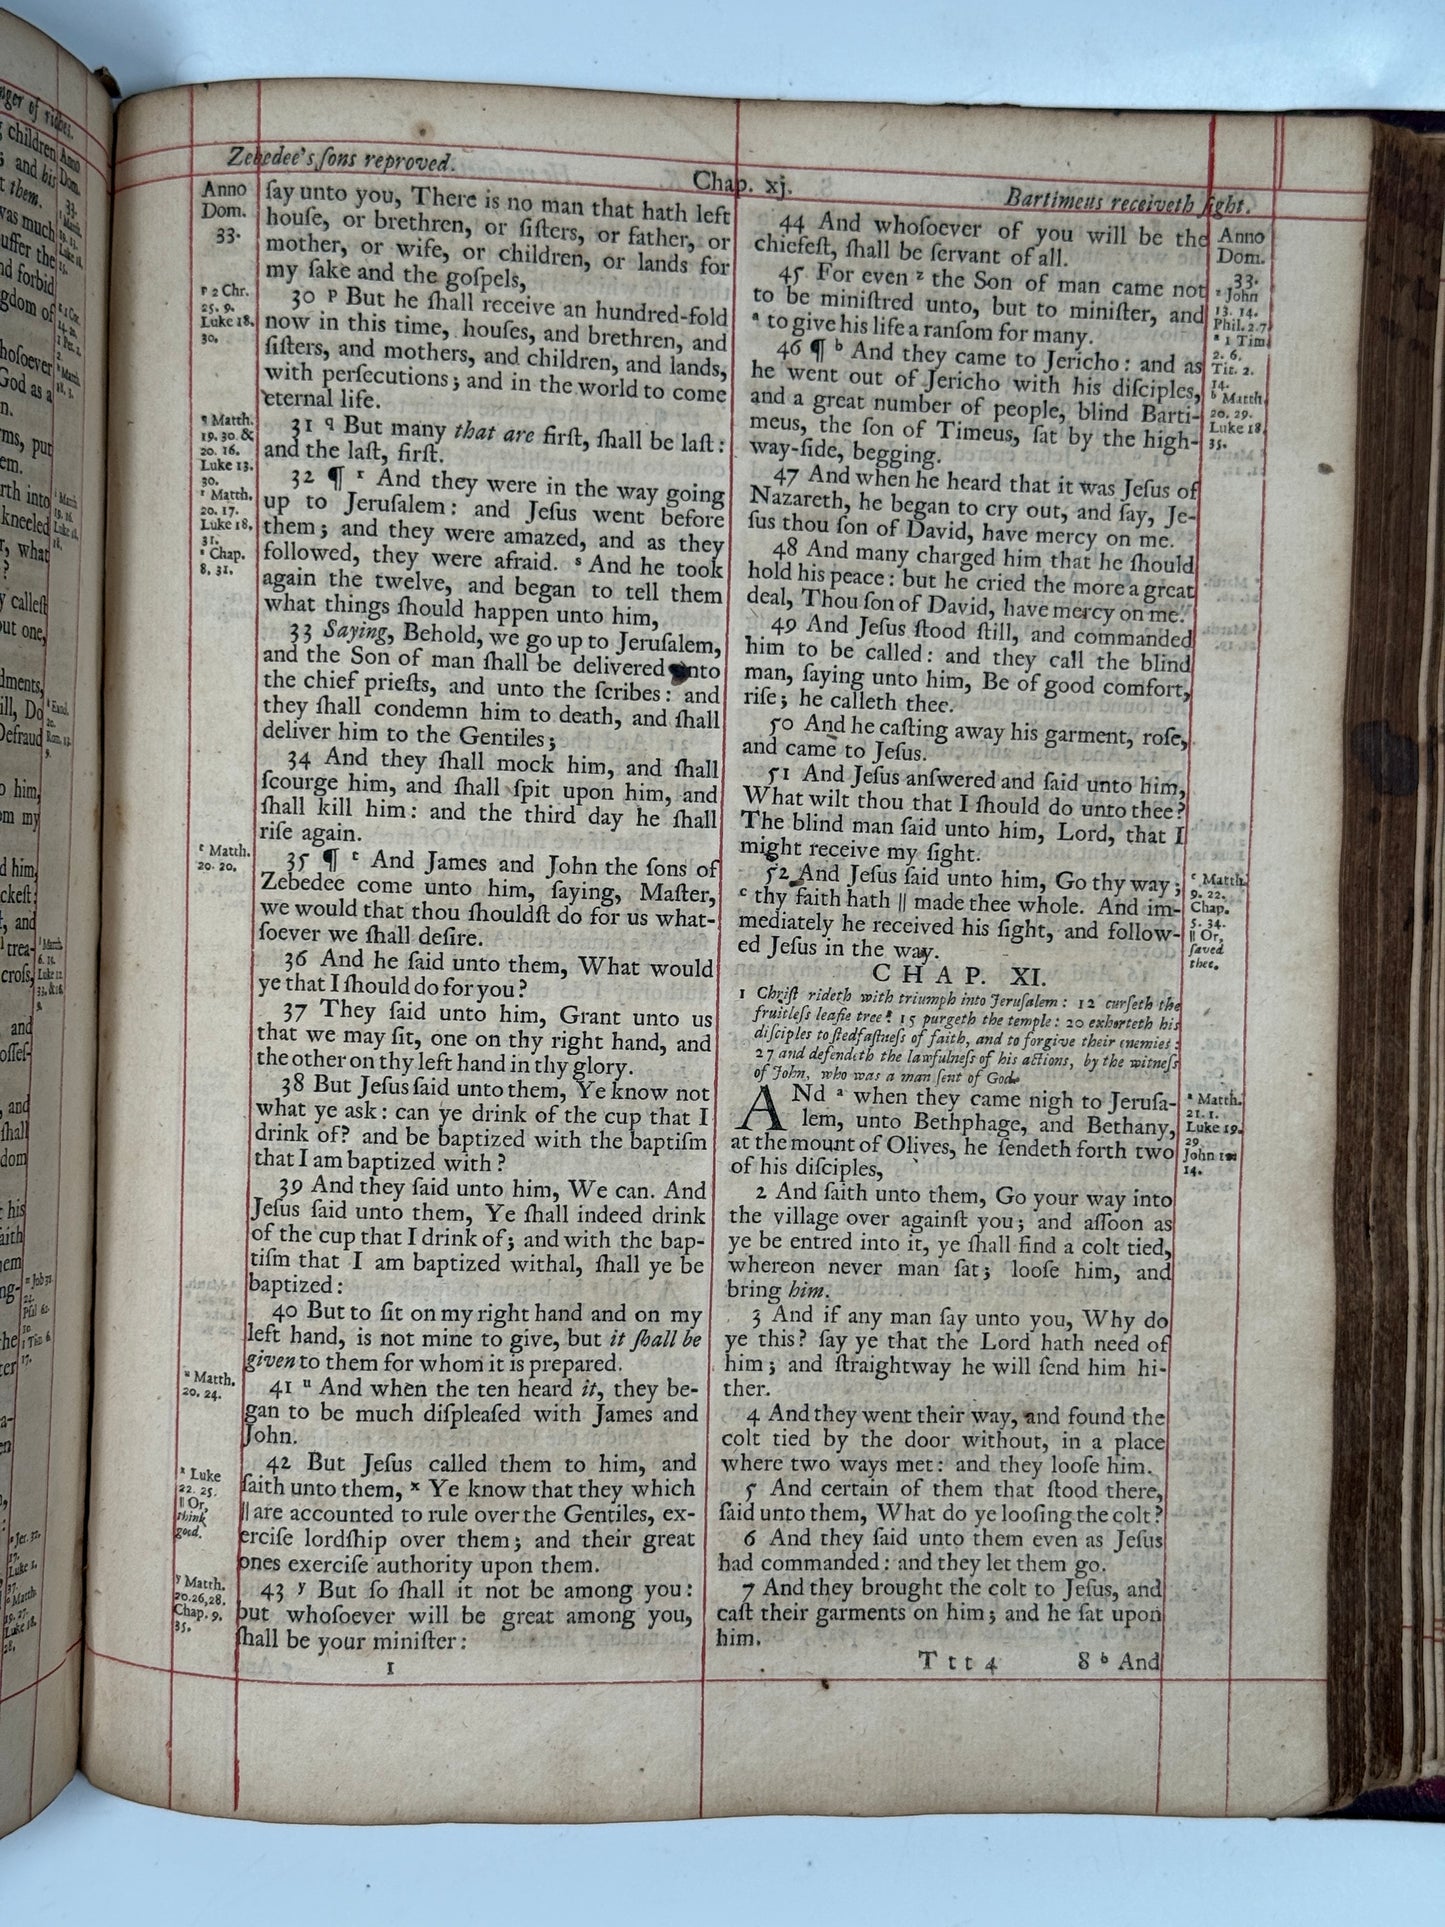 Zebedee's ſons reproved.
Chap. xj.
Bartimeus receiveth ſight.
Anno
Dom.
33.
ſay unto you, There is no man that hath left
houſe, or brethren, or ſiſters, or father, or
mother, or wife, or children, or lands for
my ſake and the goſpels,
30 ᵖ But he ſhall receive an hundred-fold
now in this time, houſes, and brethren, and
ſiſters, and mothers, and children, and lands,
with perſecutions; and in the world to come
eternal life.
31 ᑫ But many that are firſt, ſhall be laſt:
and the laſt, firſt.
32 ¶ ʳ And they were in the way going
up to Jeruſalem: and Jeſus went before
them; and they were amazed, and as they
followed, they were afraid. ˢ And he took
again the twelve, and began to tell them
what things ſhould happen unto him,
33 Saying, Behold, we go up to Jeruſalem,
and the Son of man ſhall be delivered unto
the chief prieſts, and unto the ſcribes: and
they ſhall condemn him to death, and ſhall
deliver him to the Gentiles;
34 And they ſhall mock him, and ſhall
ſcourge him, and ſhall ſpit upon him, and
ſhall kill him: and the third day he ſhall
riſe again.
35 ¶ ᵗ And James and John the ſons of
Zebedee come unto him, ſaying, Maſter,
we would that thou ſhouldſt do for us what-
ſoever we ſhall deſire.
36 And he ſaid unto them, What would
ye that I ſhould do for you?
37 They ſaid unto him, Grant unto us
that we may ſit, one on thy right hand, and
the other on thy left hand in thy glory.
38 But Jeſus ſaid unto them, Ye know not
what ye ask: can ye drink of the cup that I
drink of? and be baptized with the baptiſm
that I am baptized with?
39 And they ſaid unto him, We can. And
Jeſus ſaid unto them, Ye ſhall indeed drink
of the cup that I drink of; and with the bap-
tiſm that I am baptized withal, ſhall ye be
baptized:
40 But to ſit on my right hand and on my
left hand, is not mine to give, but it ſhall be
given to them for whom it is prepared.
41 ᵘ And when the ten heard it, they be-
gan to be much diſpleaſed with James and
John.
42 But Jeſus called them to him, and
ſaith unto them, ˣ Ye know that they which
|| are accounted to rule over the Gentiles, ex-
erciſe lordſhip over them; and their great
ones exerciſe authority upon them.
43 ʸ But ſo ſhall it not be among you:
but whoſoever will be great among you,
ſhall be your miniſter:
1
ᵖ 2 Chr.
25. 9.
Luke 18.
30.
ᑫ Matth.
19. 30. &
20. 16.
Luke 13.
30.
ʳ Matth.
20. 17.
Luke 18,
31.
ˢ Chap.
8. 31.
ᵗ Matth.
20. 20.
ᵘ Matth.
20. 24.
ˣ Luke
22. 25.
|| Or,
think
good.
ʸ Matth.
20.26,28.
Chap. 9.
35.
44 And whoſoever of you will be the
chiefeſt, ſhall be ſervant of all.
45 For even ᶻ the Son of man came not
to be miniſtred unto, but to miniſter, and
ᵃ to give his life a ranſom for many.
46 ¶ ᵇ And they came to Jericho: and as
he went out of Jericho with his diſciples,
and a great number of people, blind Barti-
meus, the ſon of Timeus, ſat by the high-
way-ſide, begging.
47 And when he heard that it was Jeſus of
Nazareth, he began to cry out, and ſay, Je-
ſus thou ſon of David, have mercy on me.
48 And many charged him that he ſhould
hold his peace: but he cried the more a great
deal, Thou ſon of David, have mercy on me.
49 And Jeſus ſtood ſtill, and commanded
him to be called: and they call the blind
man, ſaying unto him, Be of good comfort,
riſe; he calleth thee.
50 And he caſting away his garment, roſe,
and came to Jeſus.
51 And Jeſus anſwered and ſaid unto him,
What wilt thou that I ſhould do unto thee?
The blind man ſaid unto him, Lord, that I
might receive my ſight.
52 And Jeſus ſaid unto him, Go thy way;
ᶜ thy faith hath || made thee whole. And im-
mediately he received his ſight, and follow-
ed Jeſus in the way.
CHAP. XI.
1 Chriſt rideth with triumph into Jeruſalem: 12 curſeth the
fruitleſs leafie tree: 15 purgeth the temple: 20 exhorteth his
diſciples to ſtedfaſtneſs of faith, and to forgive their enemies:
27 and defendeth the lawfulneſs of his actions, by the witneſs
of John, who was a man ſent of God.
ANd ᵃ when they came nigh to Jeruſa-
lem, unto Bethphage, and Bethany,
at the mount of Olives, he ſendeth forth two
of his diſciples,
2 And ſaith unto them, Go your way into
the village over againſt you; and aſſoon as
ye be entred into it, ye ſhall find a colt tied,
whereon never man ſat; looſe him, and
bring him.
3 And if any man ſay unto you, Why do
ye this? ſay ye that the Lord hath need of
him; and ſtraightway he will ſend him hi-
ther.
4 And they went their way, and found the
colt tied by the door without, in a place
where two ways met: and they looſe him.
5 And certain of them that ſtood there,
ſaid unto them, What do ye looſing the colt?
6 And they ſaid unto them even as Jeſus
had commanded: and they let them go.
7 And they brought the colt to Jeſus, and
caſt their garments on him; and he ſat upon
him.
Ttt 4
8 ᵇ And
Anno
Dom.
33.
ᶻ John
13. 14.
Phil. 2.7
ᵃ 1 Tim.
2. 6.
Tit. 2.
14.
ᵇ Matth.
20. 29.
Luke 18.
35.
ᶜ Matth.
9. 22.
Chap.
5. 34.
|| Or,
ſaved
thee.
ᵃ Matth.
21. 1.
Luke 19.
29
John
14.